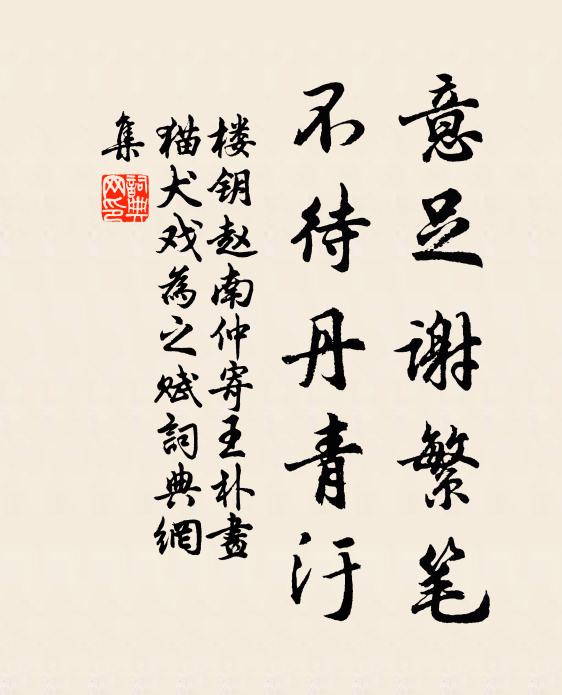 意足谢繁笔
不待丹青汙
楼钥赵南仲寄王朴畫
猫犬戏為之赋詞典網
集
詞典網印